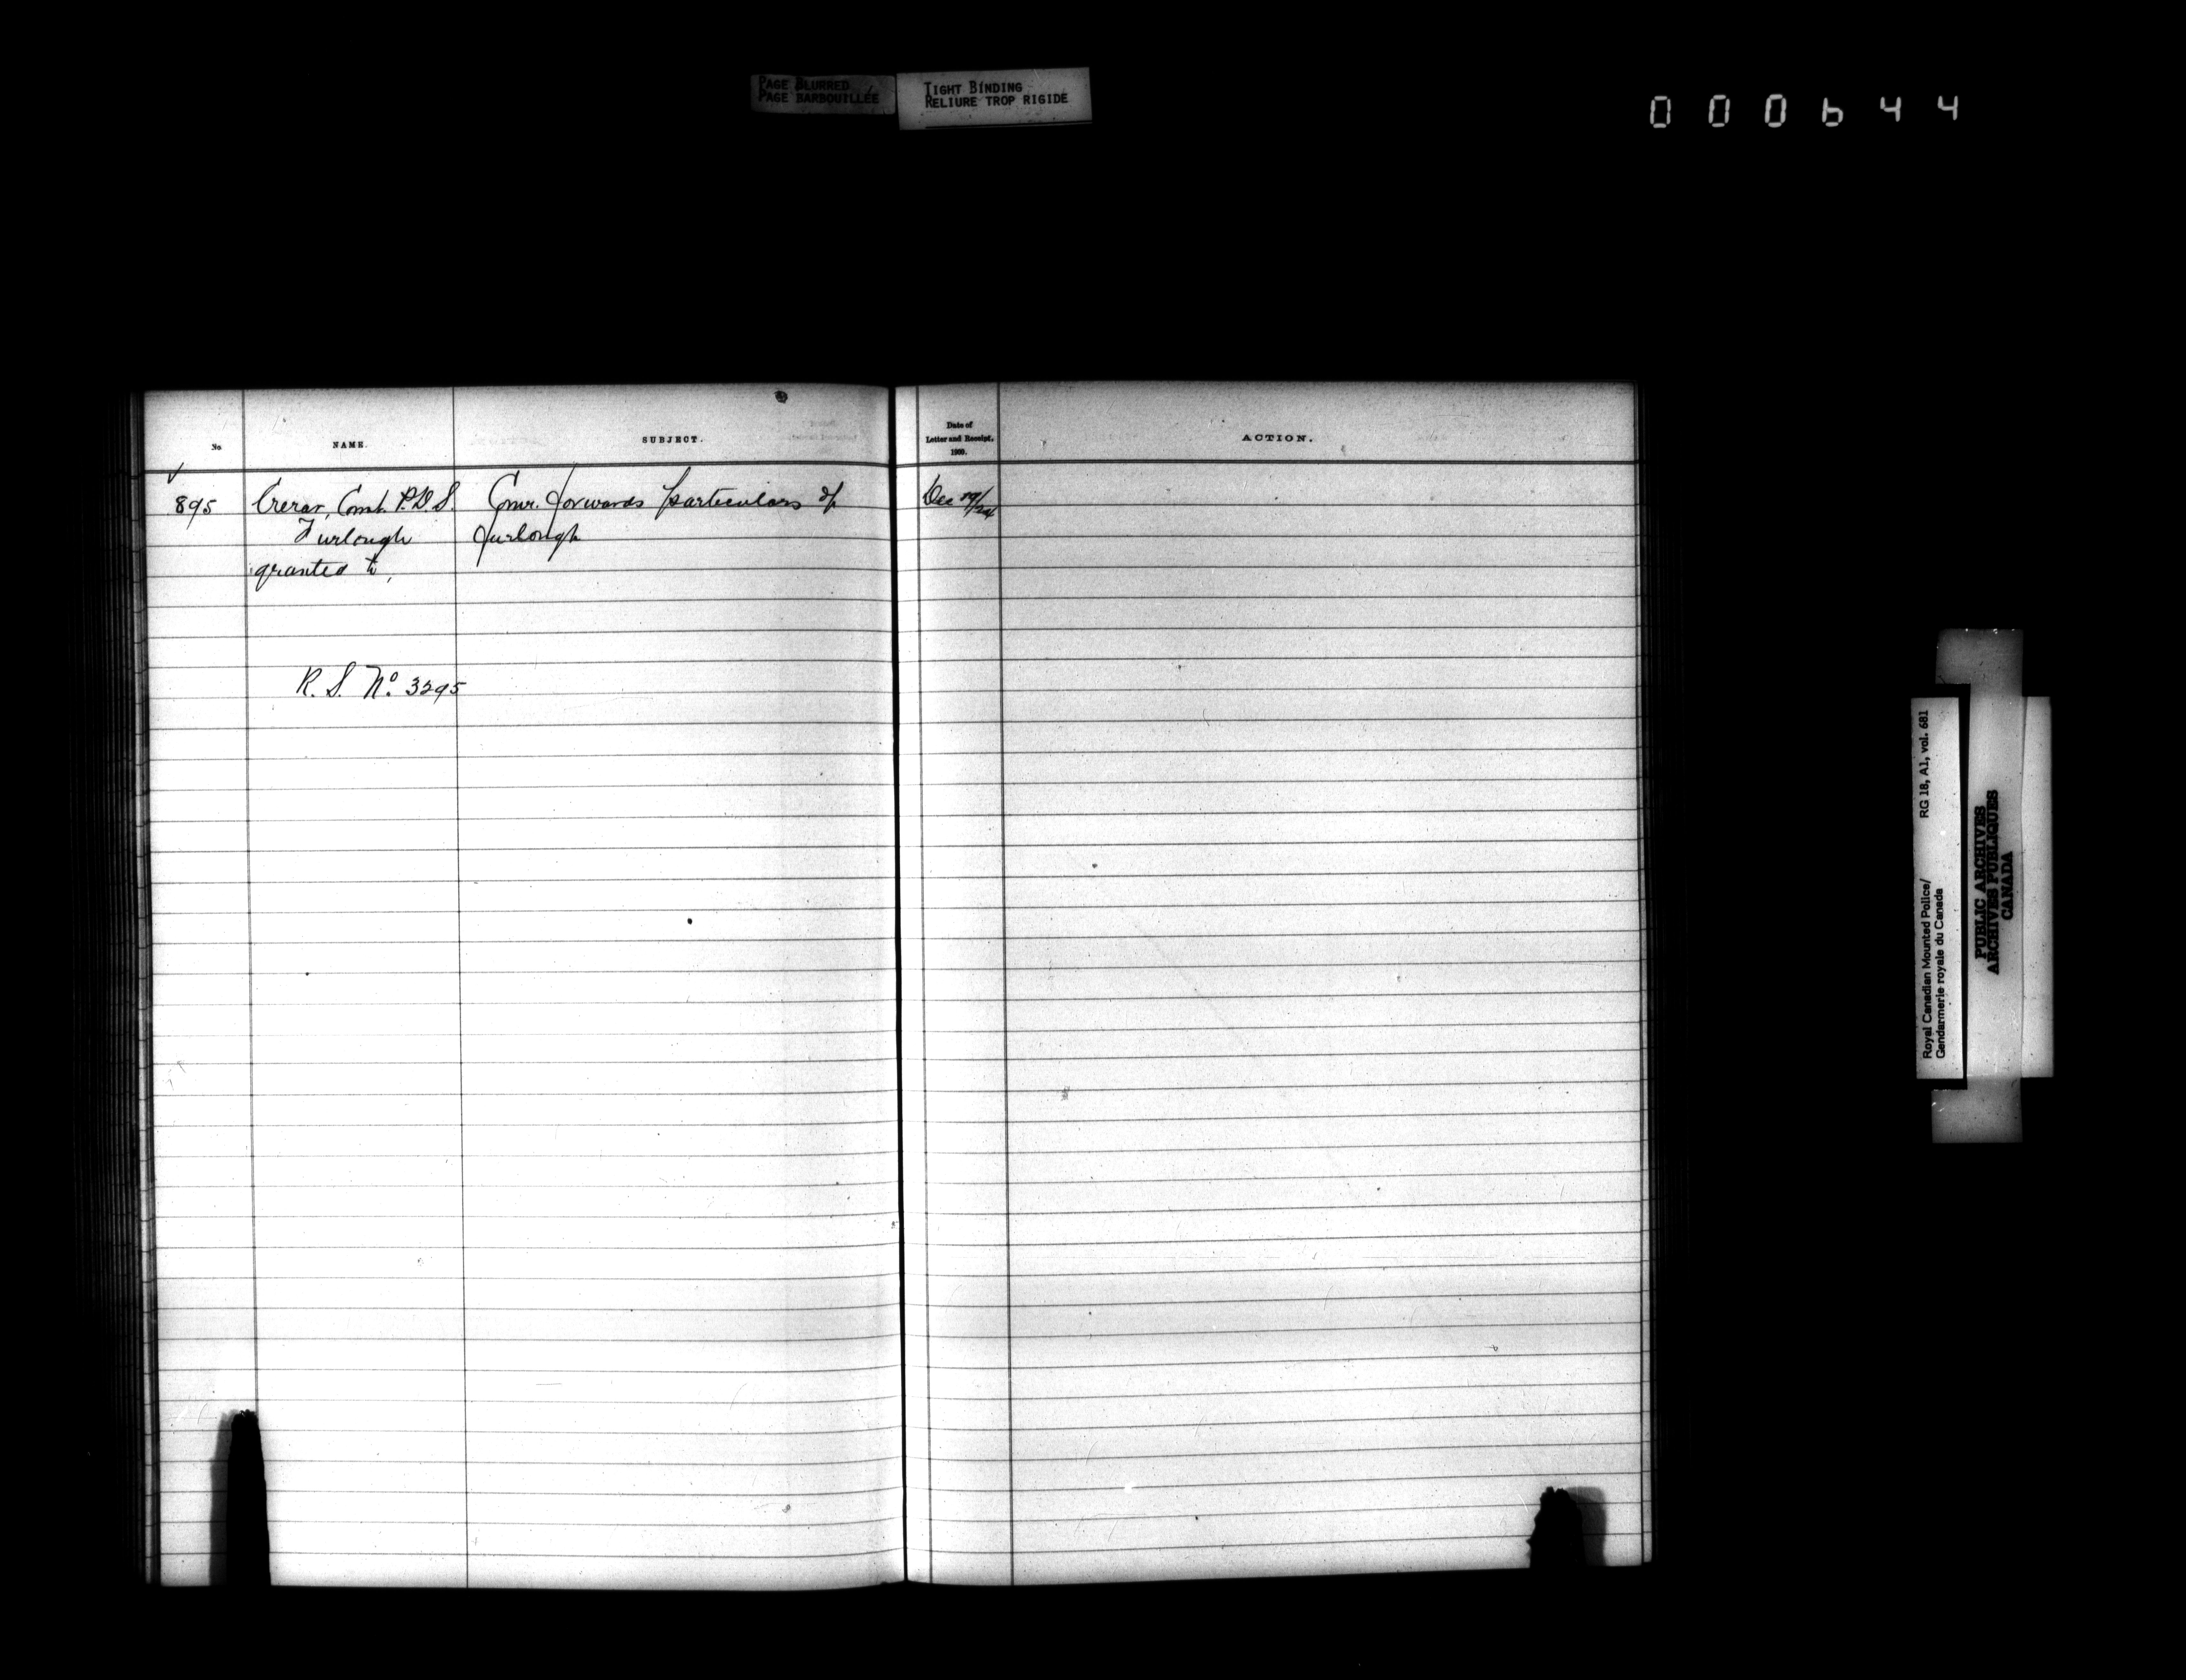 PAGE BLURRED
PAGE BARBOUILLÉE
TIGHT BINDING
RELIURE TROP RIGIDE
000644
No
NAME.
SUBJECT.
Date of
Letter and Receipt.
1900.
ACTION.
895
Crerar, Const. P.D.S.
Furlough
granted to,
Comr. forwards particulars of
furlough
Dec 19/24
R. S. No. 3295
Royal Canadian Mounted Police/
Gendarmerie royale du Canada
RG 18, A1, vol. 681
PUBLIC ARCHIVES
ARCHIVES PUBLIQUES
CANADA